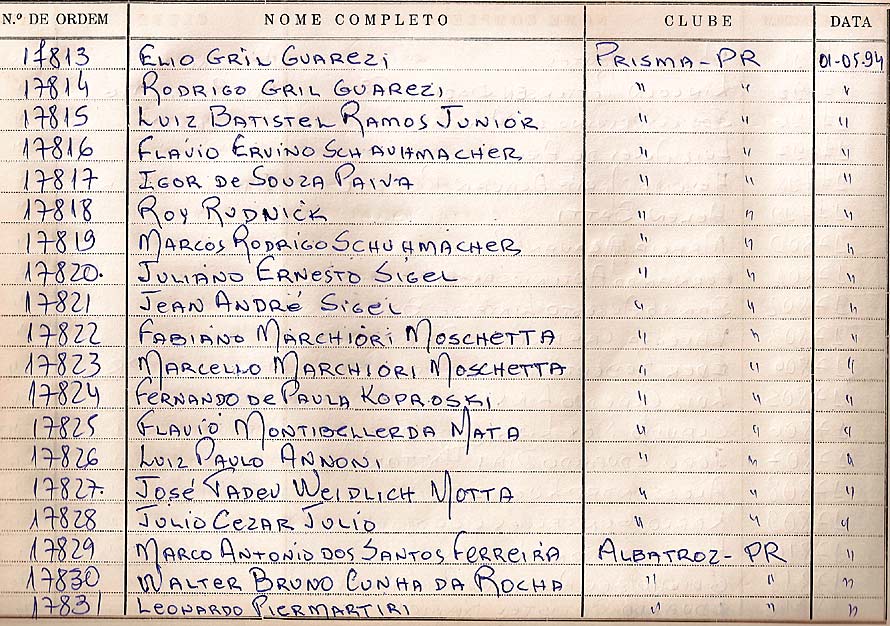 N.º DE ORDEM NOME COMPLETO CLUBE DATA
17813 ELIO GRIL GUAREZI PRISMA-PR 01-05-94
17814 RODRIGO GRIL GUAREZI " " "
17815 LUIZ BATISTEL RAMOS JUNIOR " " "
17816 FLAVIO ERVINO SCHAUHMACHER " " "
17817 IGOR DE SOUZA PAIVA " " "
17818 ROY RUDNICK " " "
17819 MARCOS RODRIGO SCHUHMACHER " " "
17820. JULIANO ERNESTO SIGEL " " "
17821 JEAN ANDRÉ SIGEL " " "
17822 FABIANO MARCHIORI MOSCHETTA " " "
17823 MARCELLO MARCHIORI MOSCHETTA " " "
17824 FERNANDO DE PAULA KOPROSKI " " "
17825 FLAVIO MONTIBELLERDA MATA " " "
17826 LUIZ PAULO ANNONI " " "
17827. JOSÉ TADEU WEIDLICH MOTTA " " "
17828 JULIO CEZAR JULIO " " "
17829 MARCO ANTONIO DOS SANTOS FERREIRA ALBATROZ-PR "
17830 WALTER BRUNO CUNHA DA ROCHA " " "
17831 LEONARDO PIERMARTIRI " " "